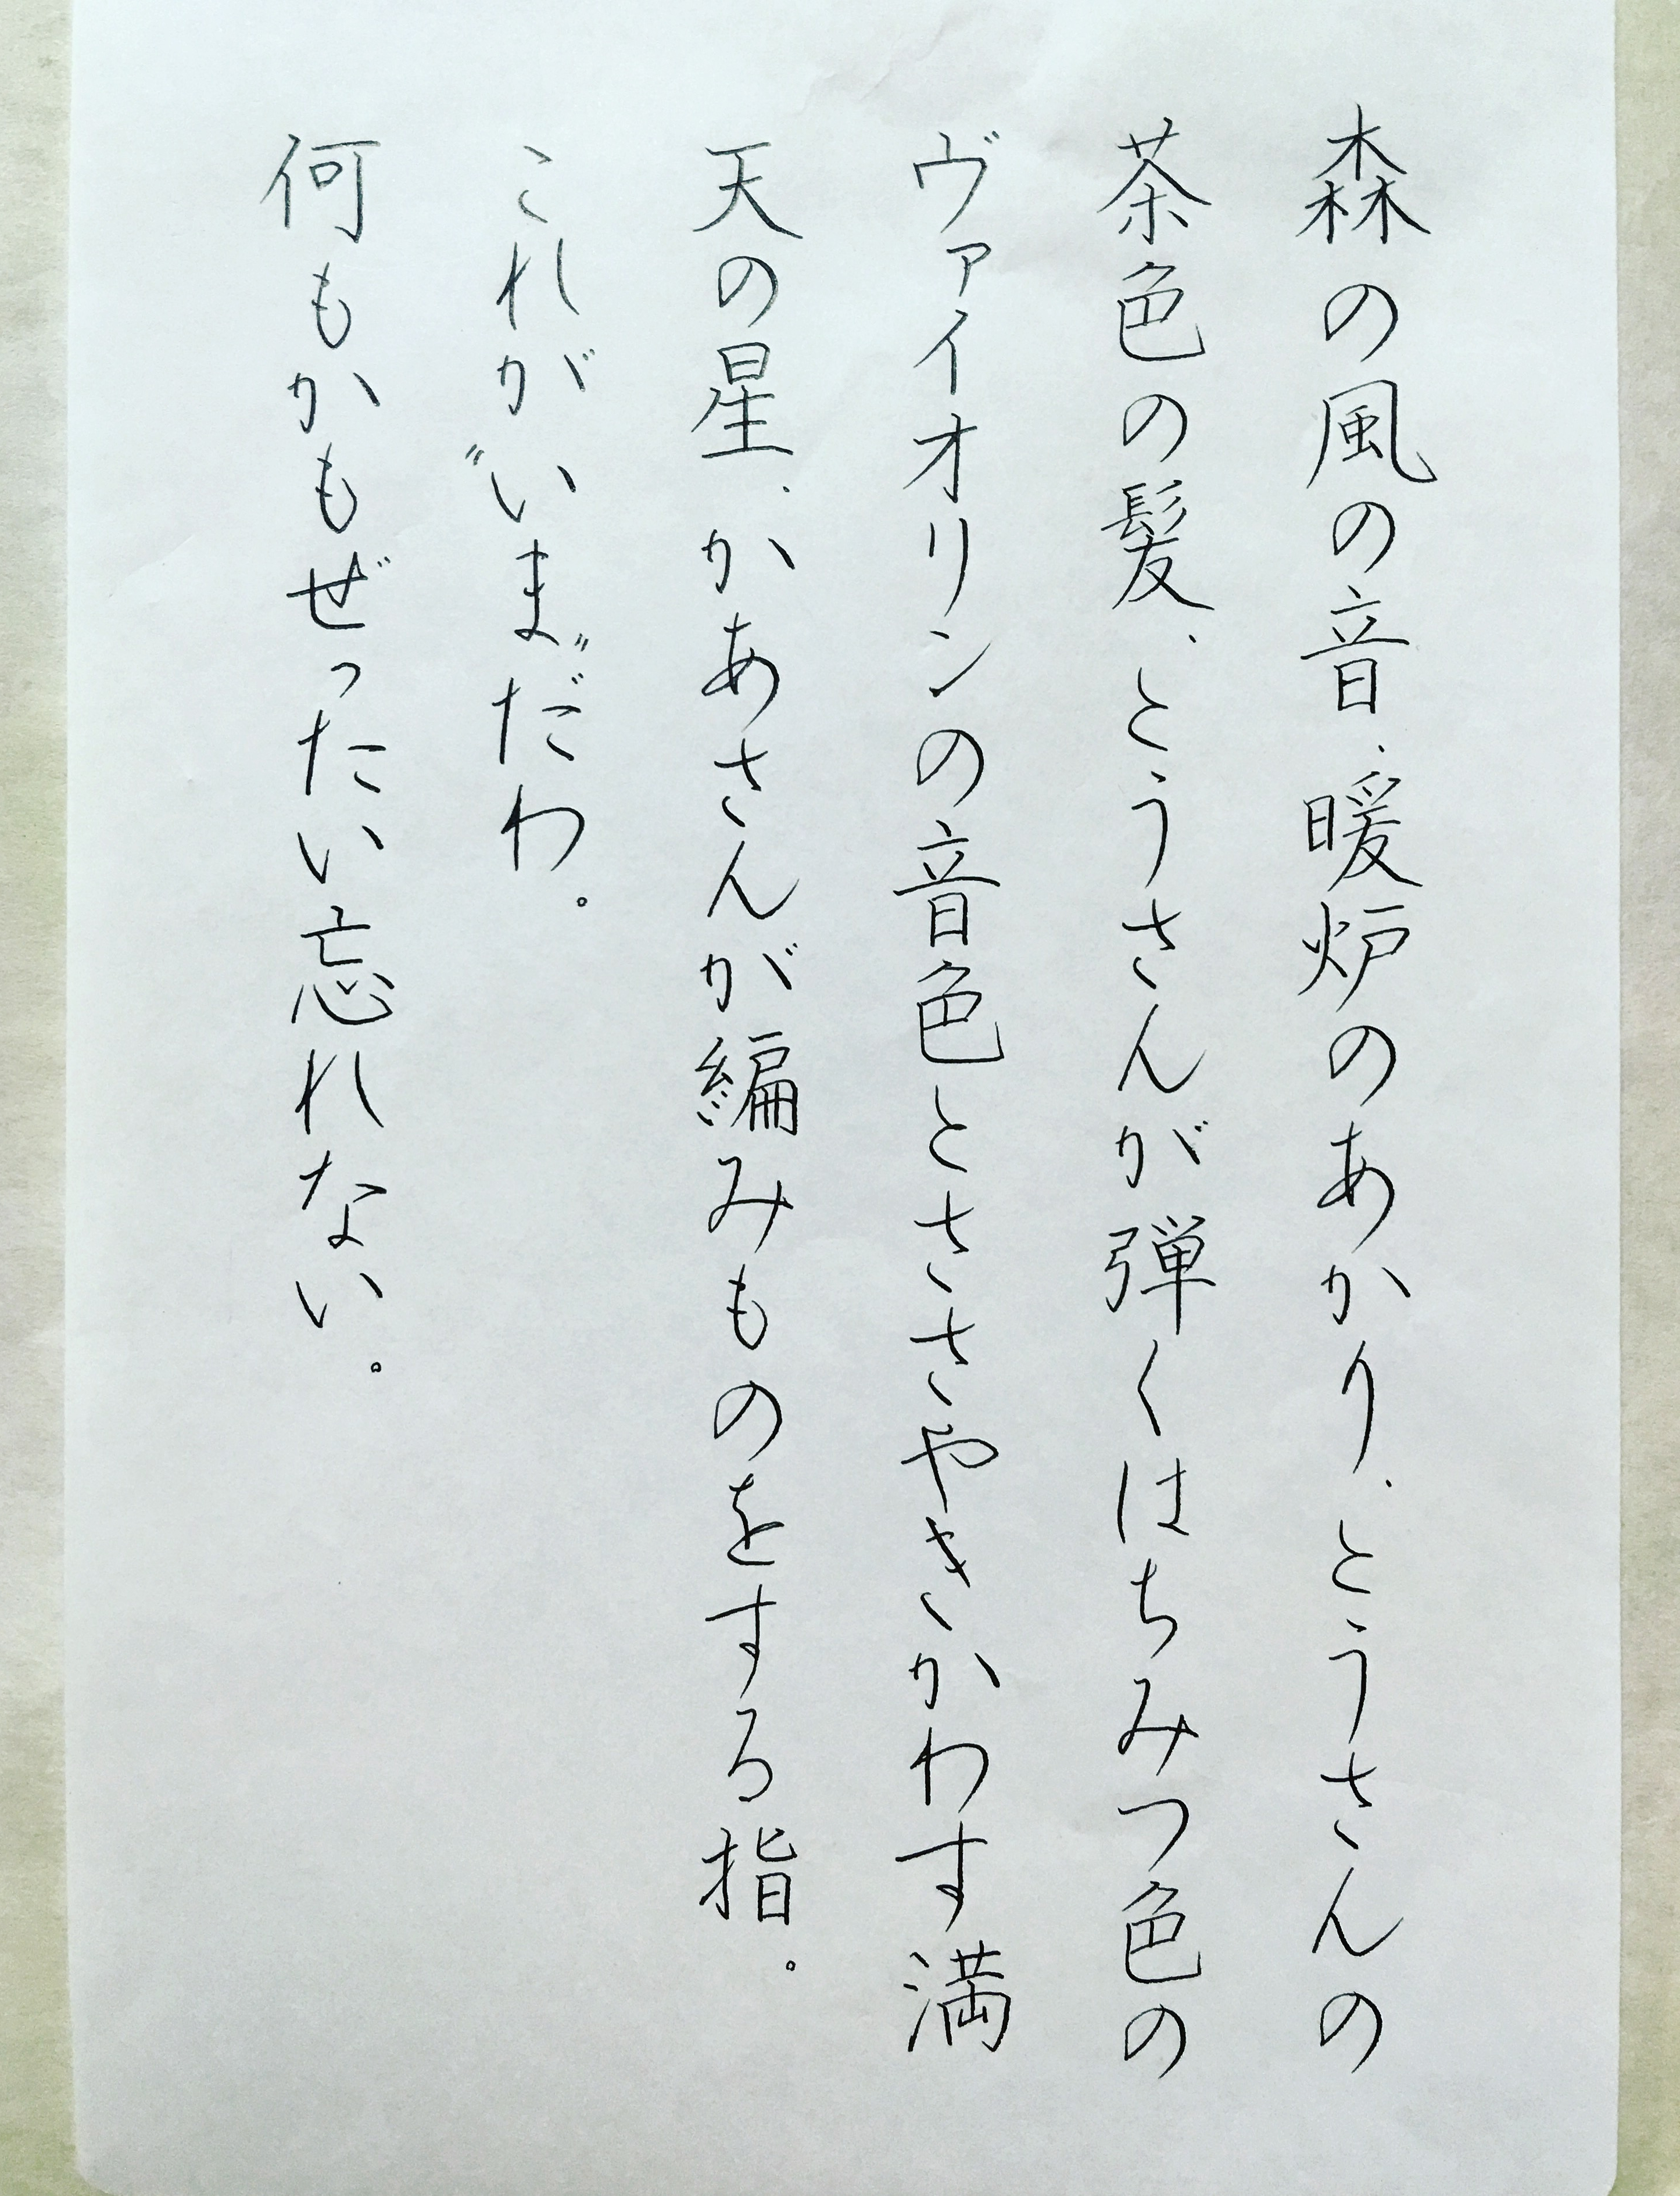 森の風の音、暖炉のあかり、とうさんの
茶色の髪、とうさんが弾くはちみつ色の
ヴァイオリンの音色とささやきかわす満
天の星、かあさんが編みものをする指。
これが〝いま〟だわ。
何もかもぜったい忘れない。